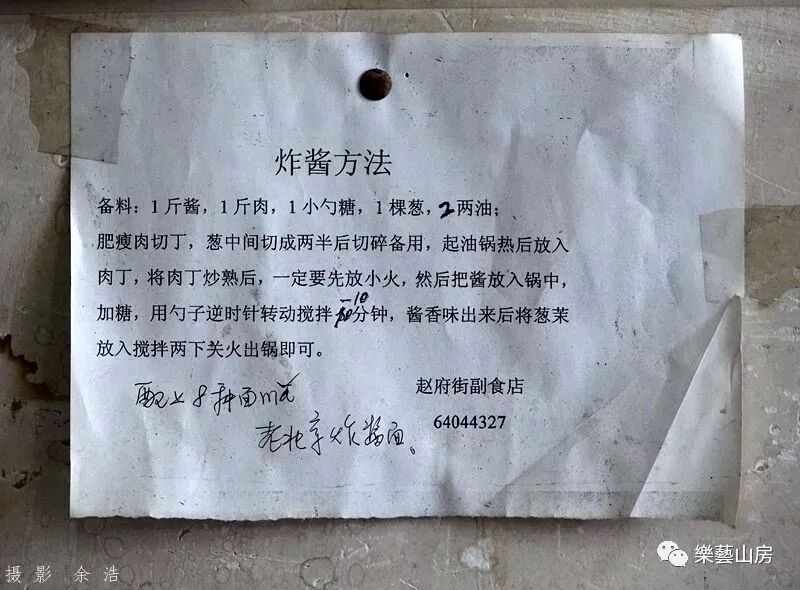 炸酱方法
备料：1斤酱，1斤肉，1小勺糖，1棵葱，2两油；
肥瘦肉切丁，葱中间切成两半后切碎备用，起油锅热后放入
肉丁，将肉丁炒熟后，一定要先放小火，然后把酱放入锅中，
加糖，用勺子逆时针转动搅拌10分钟，酱香味出来后将葱茉
放入搅拌两下关火出锅即可。
赵府街副食店
64044327
配上8种面
老北京炸酱面。
摄影 余浩
樂藝山房